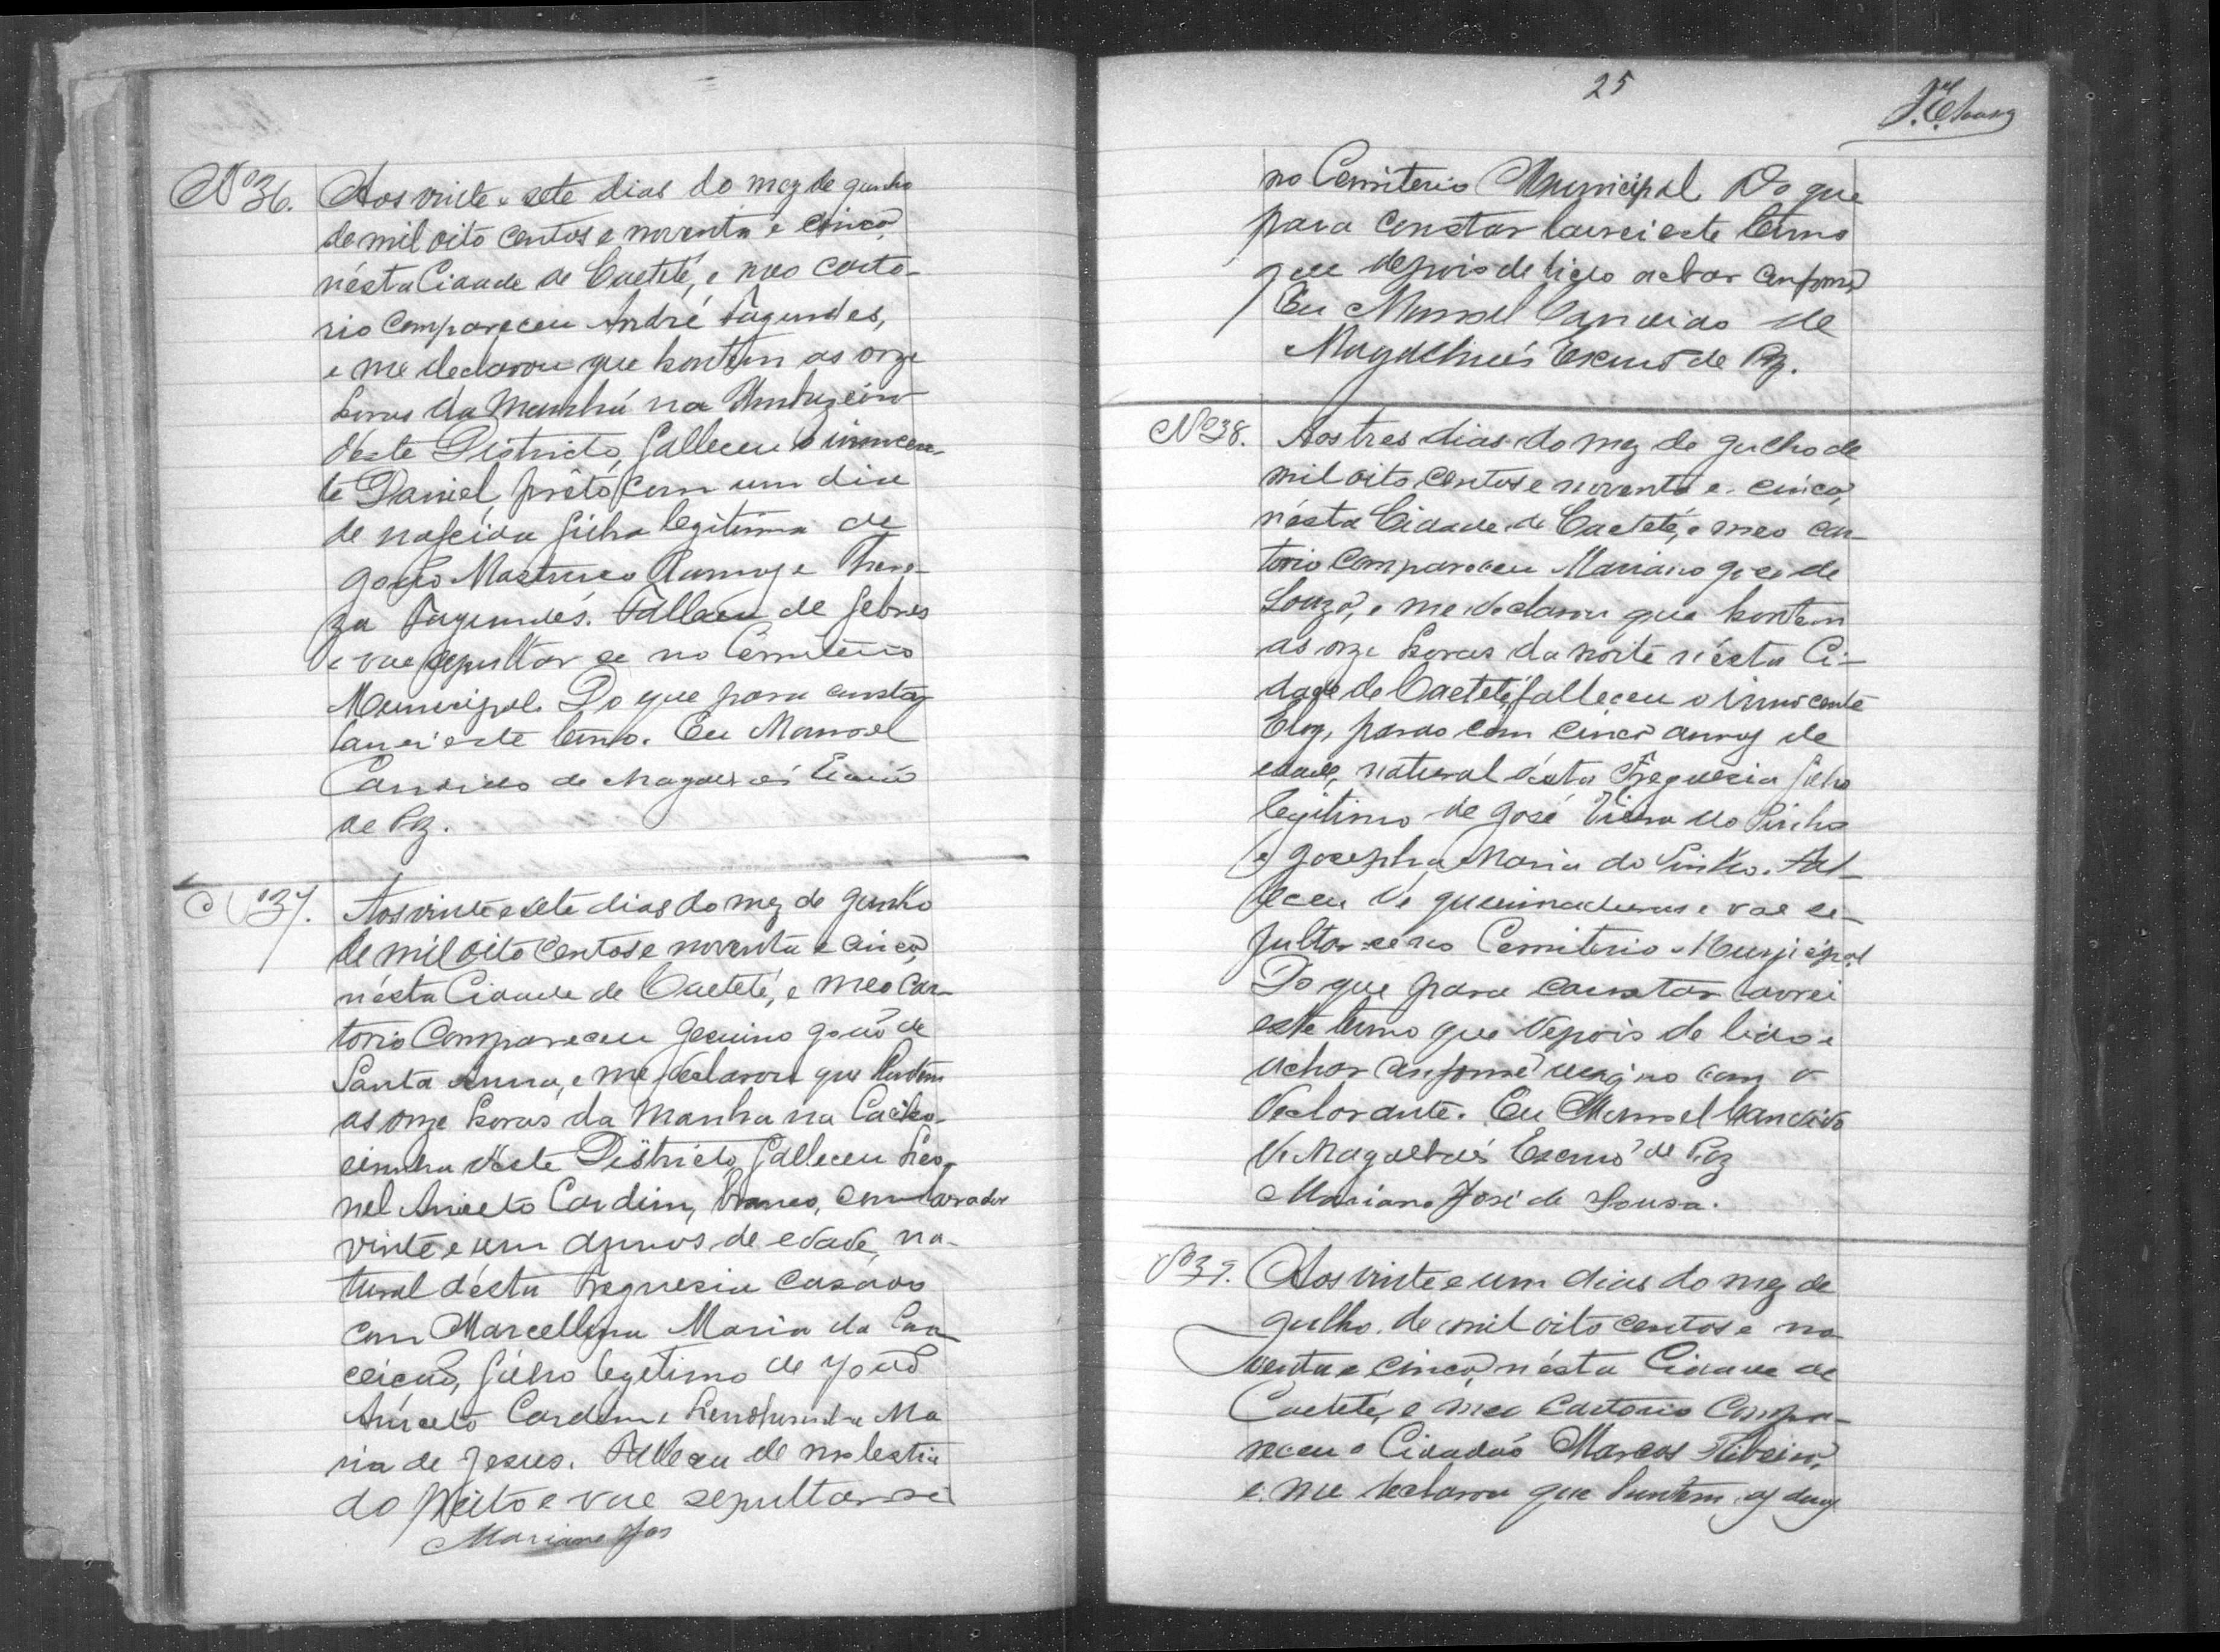 Nº 36. Aos vinte e sete dias do mez de Junho
de mil oito centos e noventa e cinco,
n'ésta Cidade de Caeteté, e meo carto-
rio compareceu André Fagundes,
e me declarou que hontem as onze
horas da manhã na
d'este Districto, falleceu o innocen-
te Daniel, prêto com um dia
de nascido filho legitimo de
There-
za Fagundés. Falleceu de febres
e vae sepultar se no Cemiterio
Municipal. Do que para constar
lavrei este termo. Eu Manoel
Candido de Magalhães Escrivão
de Paz.
Nº 37. Aos vinte e sete dias do mez de Junho
de mil oito centos e noventa e cinco,
n'ésta Cidade de Caeteté, e meo Car-
torio Compareceu Jesuino João de
Santa Anna, e me declarou que hontem
as onze horas da manhã na Cacho-
eirinha d'este Districto falleceu Leo-
nel Aniceto Cardim, branco, com lavrador
vinte e um annos de edade, na-
tural d'ésta Freguesia casado
com Marcellina Maria da Con-
ceicão, filho legitimo de João
Aniceto Cardim e Ma
ria de Jesus. Falleceu de molestia
do peito e vae sepultar se
Mariano Jos
25
no Cemiterio Municipal Do que
para constar lavrei este termo
que depois de lido achar conforme
Eu Manoel Candido de
Magalhães Escrivão de Paz.
Nº 38. Aos tres dias do mez de Julho de
mil oito centos e noventa e cinco,
n'ésta Cidade de Caeteté, e meo car-
torio compareceu Mariano José de
Souza, e me declarou que hontem
as onze horas da noite n'ésta Ci-
dade de Caeteté, falleceu o innocente
Eloy, pardo com cinco annos de
edade, natural d'ésta Freguesia filho
legitimo de José Vieira do Pinho
e Josepha Maria do Pinho. Fal-
leceu de queimaduras e vae se-
pultar-se no Cemiterio Municipal
Do que para constar lavrei
este termo que depois de lido e
achar conforme assigno com o
declarante. Eu Manoel Candido
de Magalhães Escrivão de Paz
Mariano José de Sousa.
Nº 39. Aos vinte e um dias do mez de
Julho de mil oito centos e no
venta e cinco, n'ésta Cidade de
Caeteté, e meo Cartorio Compa-
receu o Cidadão Marcos Ribeiro,
e me declarou que hontem as duas